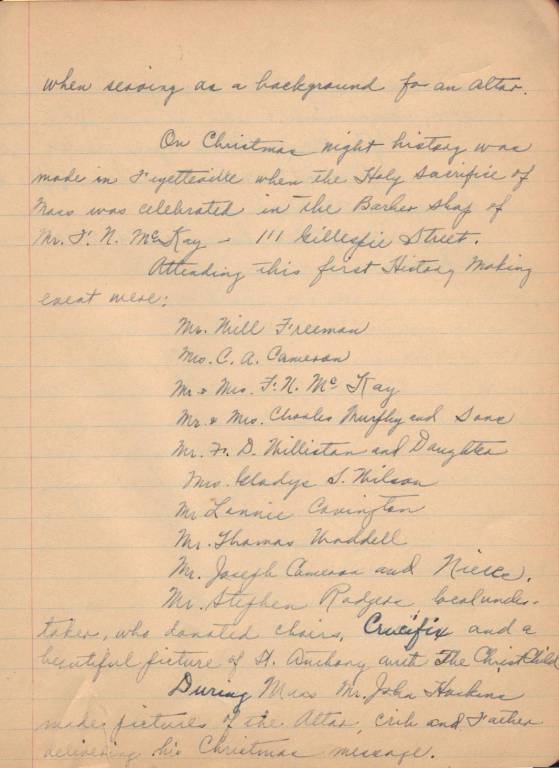 when serving as a background for an altar.
On Christmas night history was
made in Fayetteville when the Holy Sacrifice of
Mass was celebrated in the Barber Shop of
Mr. F. N. McKay - 111 Gillespie Street.
Attending this first History Making
event were:
Mr. Will Freeman
Mrs. C. A. Cameron
Mr & Mrs. F. N. Mc Kay
Mr. & Mrs. Charles Murphy and Sons
Mr. F. D. Williston and Daughter
Mrs. Gladys S. Wilson
Mr Lannie Covington
Mr. Thomas Waddell
Mr. Joseph Cameron and Niece.
Mr. Stephen Rodgers local under-
taker, who donated chairs, Crucifix and a
beautiful picture of St. Anthony with The Christ Child
During Mass Mr. John Hoskins
made pictures of the Altar, crib and Father
delivering his Christmas message.